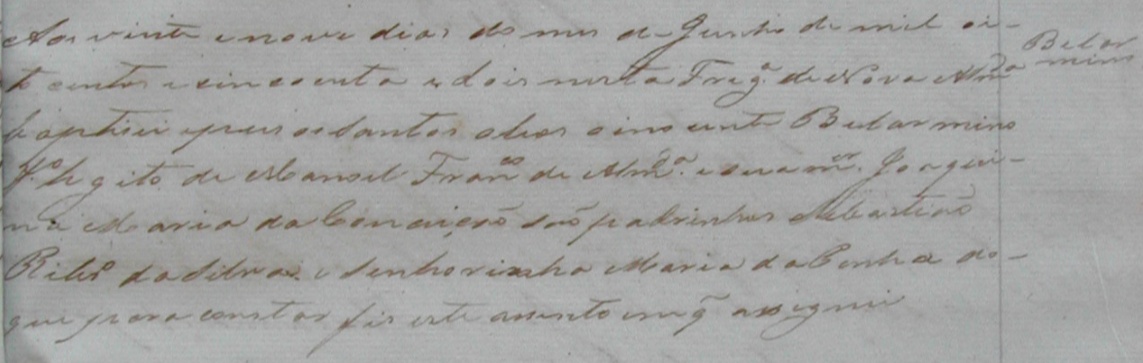 Aos vinte e nove dias do mes de Junho de mil oi-
to centos e sincoenta e dois nesta Freg.ª de Nova Alm.da
baptisei e pus os Santos oleos o inocente Belarmino
F.º legito de Manoel Fran.co de Alm.da e sua m.er Joaqui-
na Maria da Conceição são padrinhos Sebastião
Ribr.º da Silva e Senhorinha Maria da Penha do-
que para constar fis este assento em q̃ assignei
Belar
mino